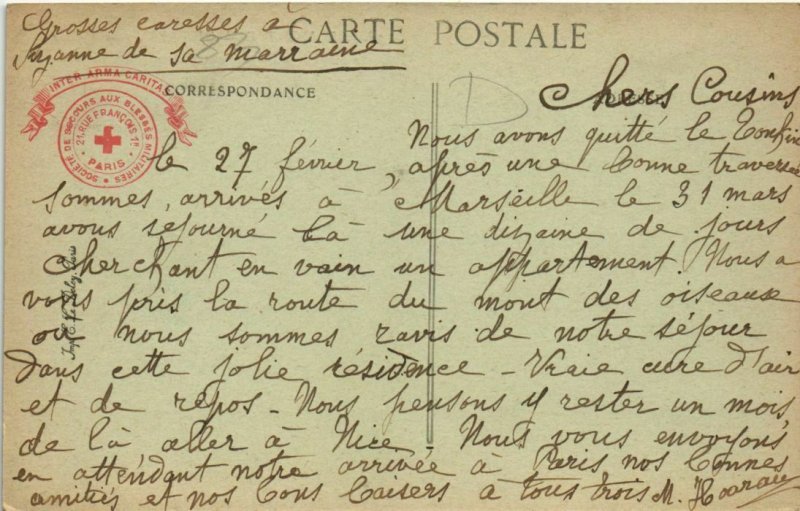 Grosses caresses à
Suzanne de sa marraine
CARTE POSTALE
CORRESPONDANCE
INTER ARMA CARITAS
SOCIÉTÉ DE SECOURS AUX BLESSÉS MILITAIRES
21, RUE FRANÇOIS 1er
PARIS
D
Chers Cousins
Nous avons quitté le Tonkin
le 27 février, après une bonne traversée
sommes, arrivés à Marseille le 31 mars
avons séjourné là une dizaine de jours
cherchant en vain un appartement. Nous a
vons pris la route du mont des oiseaux
où nous sommes ravis de notre séjour
dans cette jolie résidence - Vraie cure d'air
et de repos - Nous pensons y rester un mois,
de là aller à Nice. Nous vous envoyons,
en attendant notre arrivée à Paris nos bonnes
amitiés et nos bons baisers à tous trois M.
Paris